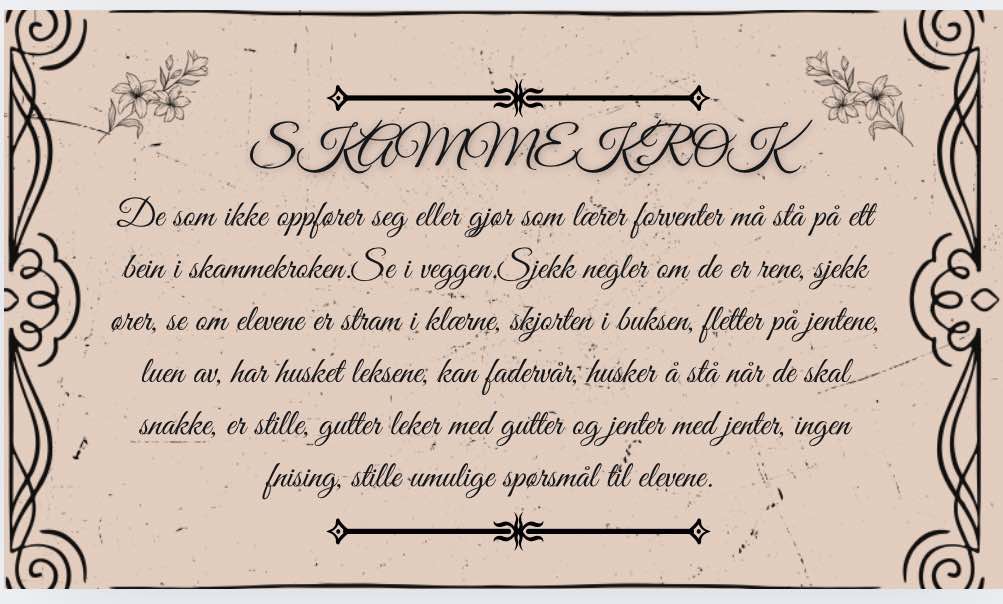 SKAMMEKROK
De som ikke oppfører seg eller gjør som lærer forventer må stå på ett
bein i skammekroken.Se i veggen.Sjekk negler om de er rene, sjekk
ører, se om elevene er stram i klærne, skjorten i buksen, fletter på jentene,
luen av, har husket leksene, kan fadervår, husker å stå når de skal
snakke, er stille, gutter leker med gutter og jenter med jenter, ingen
fnising, stille umulige spørsmål til elevene.